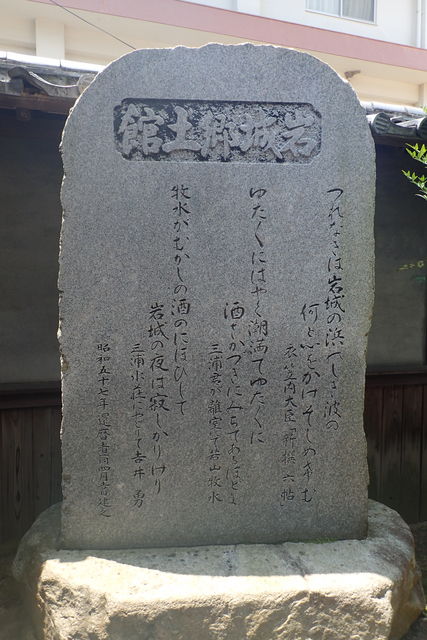 岩城郷土館
つれなさは岩城の浜のしき波の
何と心をかけそしめけむ
衣笠内大臣 新撰六帖
ゆた〱にはやく潮満てゆた〱に
酒さかづきにみちてあるほどに
三浦君が離室にて 若山牧水
牧水がむかしの酒のにほひして
岩城の夜は寂しかりけり
三浦 にて 吉井勇
昭和五十七年還暦者 四月吉 建之